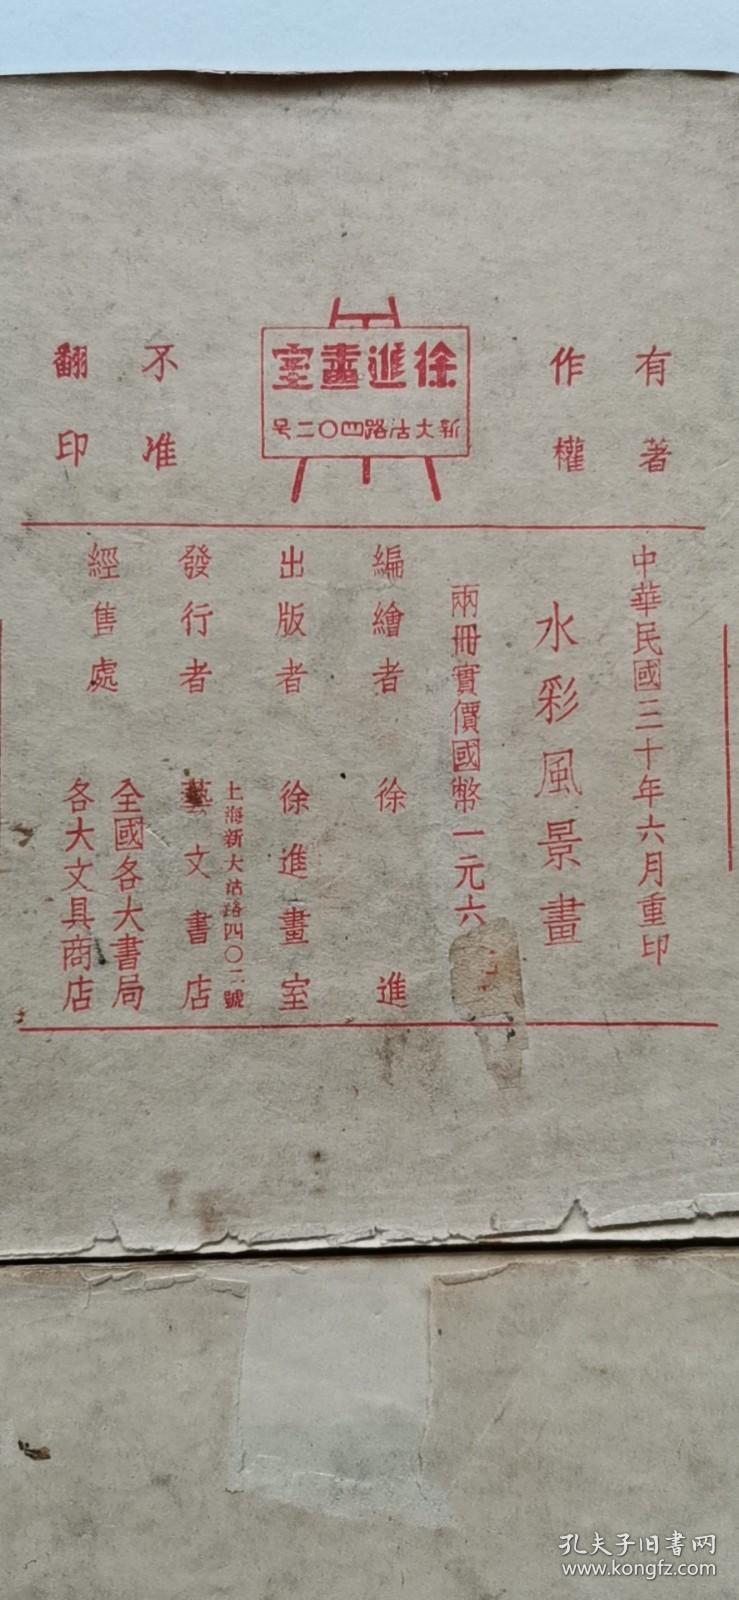 有著作權
徐進畫室
新大沽路四〇二号
不准翻印
中華民國三十年六月重印
水彩風景畫
兩冊實價國幣一元六
編繪者 徐進
出版者 徐進畫室
上海新大沽路四〇二號
發行者 藝文書店
經售處 全國各大書局
各大文具商店
孔夫子旧书网
www.kongfz.com